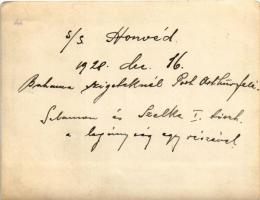 s/s Honvéd
1928. dec. 16.
Bahama szigeteknél Port Arthur felé.
és Szelke I. tiszt.
a legénység egy részével.